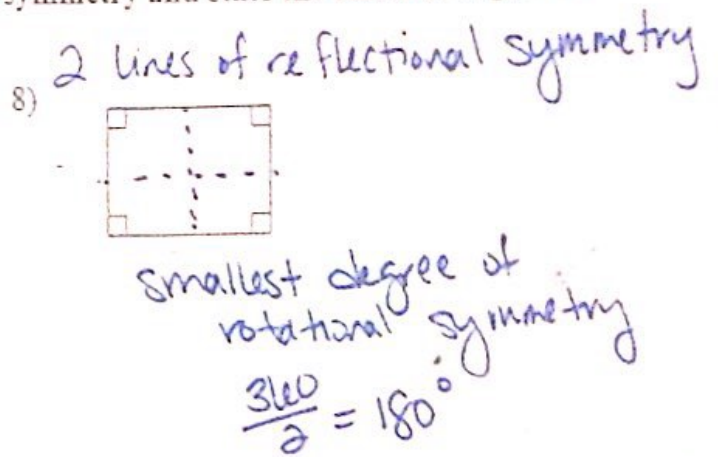 2 lines of reflectional symmetry
8)
smallest degree of
rotational symmetry
360/2 = 180°